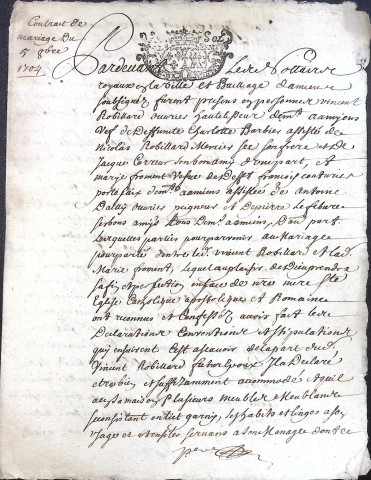 Contract de
mariage du
5 9bre
1704
Pardevant Le Notaires
royaux en la ville et Bailliage d'amiens
soubsignez furent presens en personnes vincent
Robillard ouvrier hautelisseur demt a amiens
Vef de deffunte Charlotte Barbier assisté de
Nicolas Robillard son frere et de
Jacque Correur son bon amy d'une part, et
Marie froment Vefve de deffunt francois
portefaix demt a amiens assistée de antoine
Dailly ouvrier peigneur et de pierre Lefebure
ses bons amys tous demt a amiens, D'autre part
Lesquelles parties pour parvenir au Mariage
pourparlé d'entre led. vincent Robillard et lad.
Marie froment, lequel au plaisir de Dieu prendra
sa fin et perfection en face de nre mere Ste
Eglise Catolique apostolique et Romaine
ont reconnus et Confessé avoir fait les
Declarations Conventions et stipulations
qui ensuivent C'est ascavoir de la part dud.
Vincent Robillard futur epoux Il a Declaré
et suffisamment accommodé et qu'il
a en sa maison plusieurs meubles et Meublants
consistant en lit garny, ses habits et linges a son
usage et ustensiles servans a son Menage dont